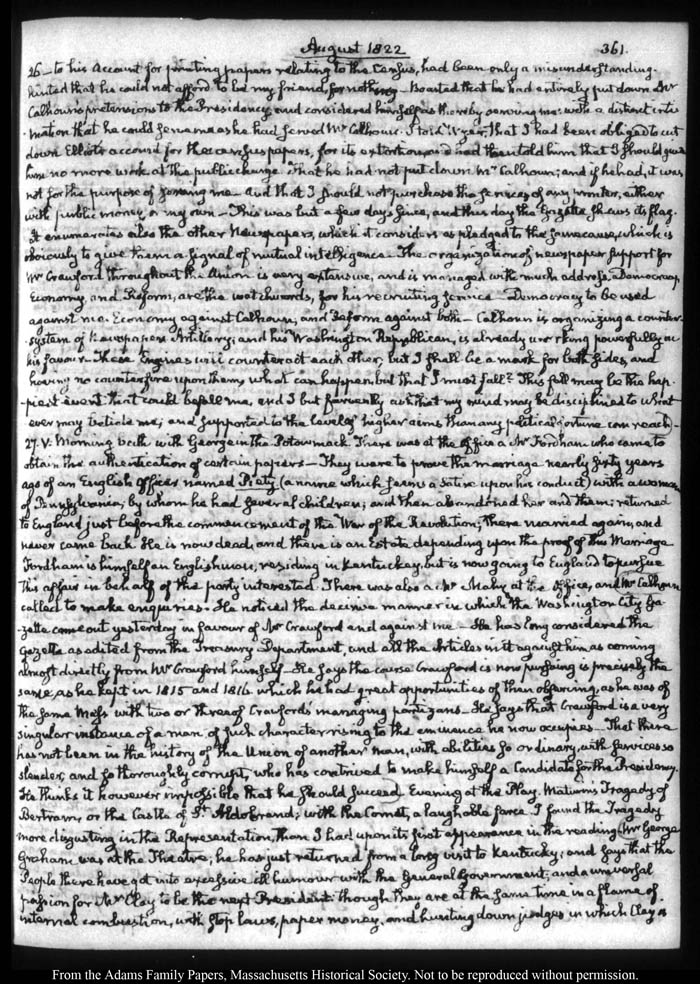 August 1822 361.
26 – to his Account for printing papers relating to the Census, had been only a misunderstanding.
hinted that he could not afford to be my friend, for nothing – Boasted that he had entirely put down Mr
Calhoun's pretensions to the Presidency, and considered himself as thereby serving me: with a distinct inti
mation that he could serve me as he had served Mr Calhoun. I told Wyer, That I had been obliged to cut
down Elliot's account for the census papers, for its extortion, and had then told him that I should give
him no more work at the public charge. That he had not put down Mr Calhoun; and if he had, it was
not for the purpose of serving me – And that I should not purchase the services of any printer, either
with public money, or my own – This was but a few days since, and this day the Gazette shews its flag.
It enumerates also the other Newspapers, which it considers as pledged to the same cause, which is
obviously to give them a signal of mutual intelligence – The organization of newspaper support for
Mr Crawford throughout the Union is very extensive, and is managed with much address, Democracy,
Economy, and Reform, are the watchwords, for his recruiting service – Democracy to be used
against me. Economy against Calhoun, and Reform against both – Calhoun is organizing a counter-
system of Newspaper Artillery; and his Washington Republican, is already working powerfully in
his favour – These Engines will counteract each other, but I shall be a mark for both sides, and
having no counterfire upon them, what can happen but that I must fall? This fall may be the hap-
piest event that could befall me, and I but fervently ask that my mind may be disciplined to what-
ever may betide me; and supported to the level of higher aims than any political fortune can reach) –
27. V. Morning bath with George in the Potowmack. There was at the office a Mr Fordham who came to
obtain the authentication of certain papers – They were to prove the marriage nearly fifty years
ago of an English Officer named Piety (a name which seems a Satire upon his conduct) with a woman
of Pennsylvania; by whom he had several children; and then abandoned her and them; returned
to England just before the commencement of the War of the Revolution; There married again, and
never came back. He is now dead, and there is an Estate depending upon the proof of this Marriage
Fordham is himself an Englishman, residing in Kentuckey, but is now going to England to pursue
This affair in behalf of the party interested. There was also a Mr Mahy at the Office, and Mr Calhoun
called to make enquiries. He noticed the decisive manner in which the Washington City Ga-
zette came out yesterday in favour of Mr Crawford and against me – He has long considered the
Gazette as edited from the Treasury Department, and all the Articles in it against him, as coming
almost directly from Mr Crawford himself – He says the course Crawford is now pursuing is precisely the
same, as he kept in 1815 and 1816. which he had great opportunities of then observing, as he was of
the same Mess with two or three of Crawford's managing partizans – He says that Crawford is a very
singular instance of a man of such character rising to the eminence he now occupies – That there
has not been in the history of the Union of another man, with abilities so ordinary, with services so
slender, and so thoroughly corrupt, who has contrived to make himself a Candidate for the Presidency.
He thinks it however impossible that he should succeed. Evening at the Play. Maturin's Tragedy of
Bertram, or the Castle of St. Aldobrand; with the Comet, a laughable farce. I found the Tragedy
more disgusting in the Representation, than I had upon its first appearance in the reading. Mr George
Graham was at the Theatre, he has just returned from a long visit to Kentucky; and says that the
People there have got into excessive ill humour with the General Government; and a universal
passion for Mr Clay to be the next President: though they are at the same time in a flame of
internal combustion, with stop laws, paper money, and hunting down judges in which Clay is
From the Adams Family Papers, Massachusetts Historical Society. Not to be reproduced without permission.